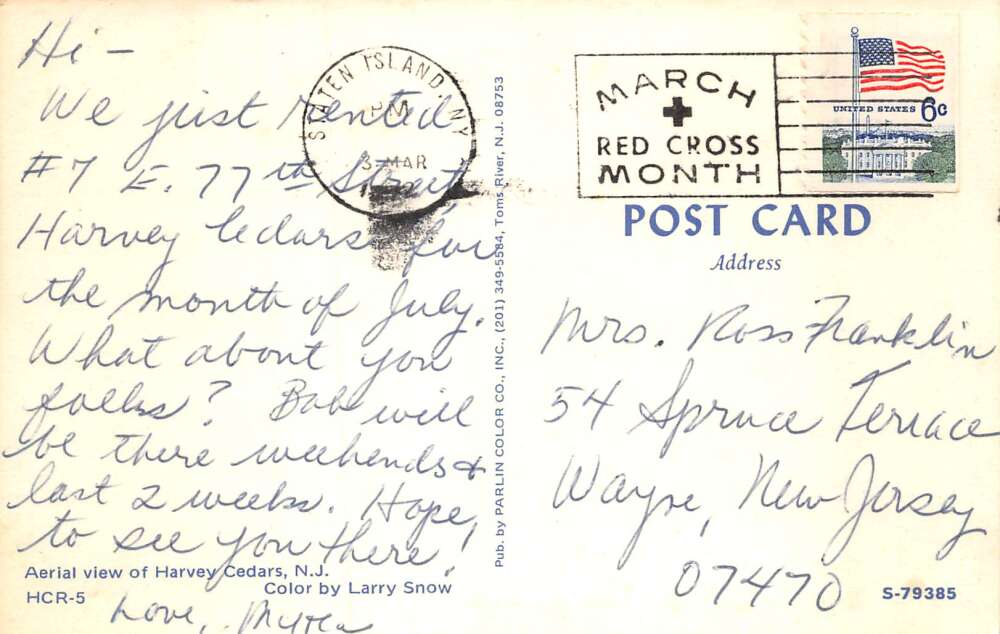 Hi -
We just rented
#7 E. 77th Street,
Harvey Cedars for
the month of July.
What about you
folks? Bob will
be there weekends &
last 2 weeks. Hope,
to see you there!
Love,
Aerial view of Harvey Cedars, N.J.
Color by Larry Snow
HCR-5
STATEN ISLAND, NY
PM
3 MAR
Pub. by PARLIN COLOR CO., INC., (201) 349-5584, Toms River, N.J. 08753
MARCH
RED CROSS
MONTH
UNITED STATES 6c
POST CARD
Address
Mrs. Ross Franklin
54 Spruce Terrace
Wayne, New Jersey
07470
S-79385